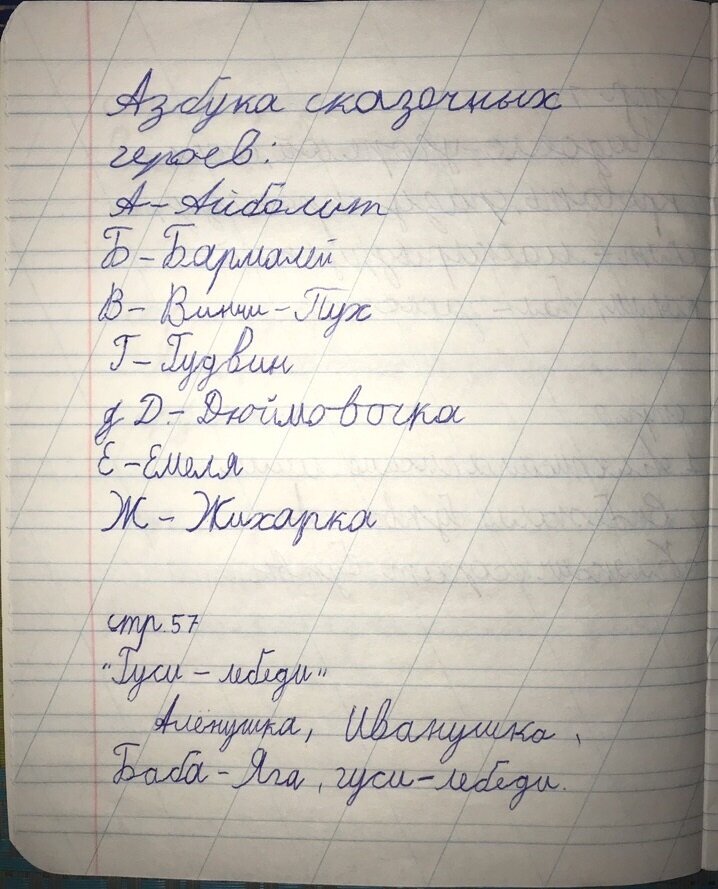 Азбука сказочных
героев:
А - Айболит
Б - Бармалей
В - Винни - Пух
Г - Гудвин
д Д. - Дюймовочка
Е - Емеля
Ж - Жихарка
стр. 57
"Гуси - лебеди"
Алёнушка, Иванушка,
Баба - Яга, гуси - лебеди.